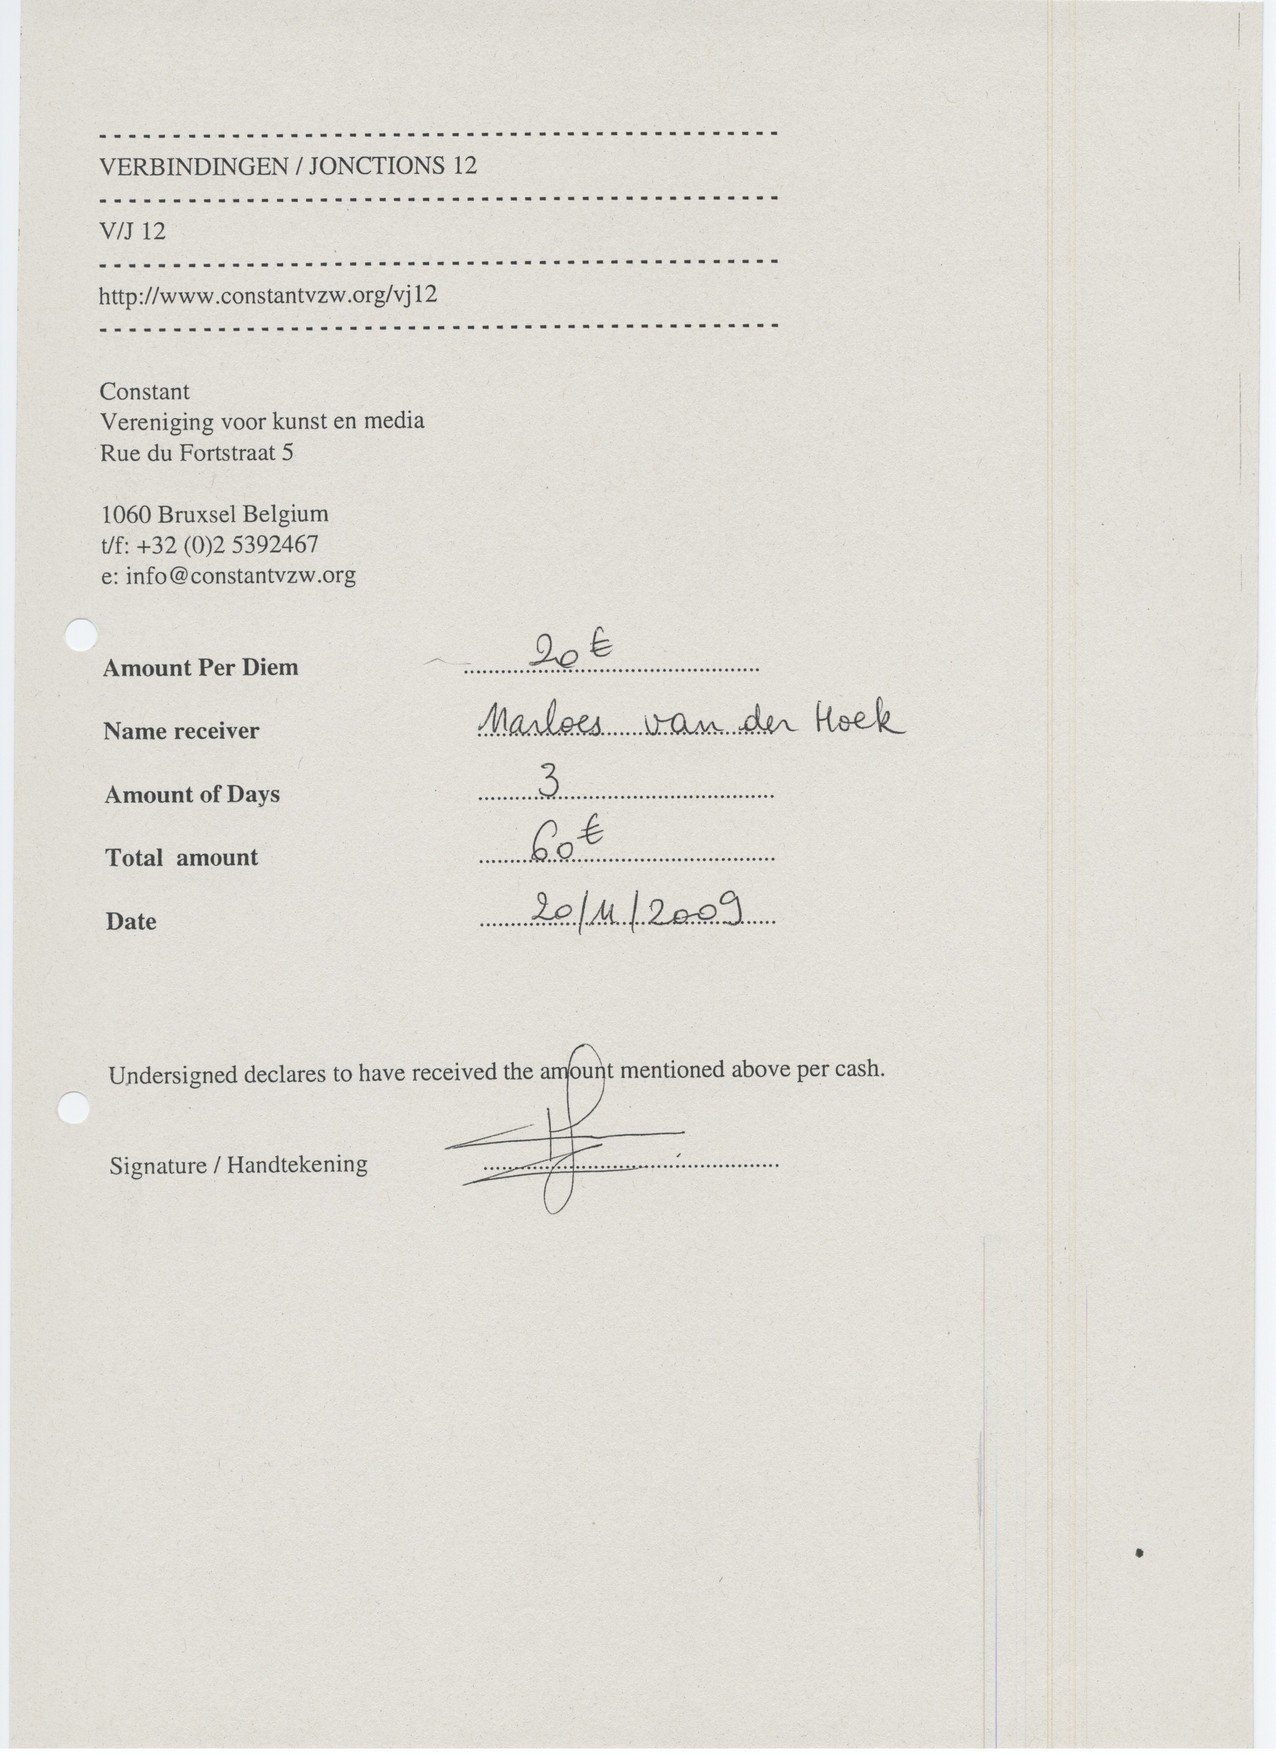 VERBINDINGEN / JONCTIONS 12
V/J 12
http://www.constantvzw.org/vj12
Constant
Vereniging voor kunst en media
Rue du Fortstraat 5
1060 Bruxsel Belgium
t/f: +32 (0)2 5392467
e: info@constantvzw.org
Amount Per Diem 20 €
Name receiver Marloes van der Hoek
Amount of Days 3
Total amount 60 €
Date 20/11/2009
Undersigned declares to have received the amount mentioned above per cash.
Signature / Handtekening